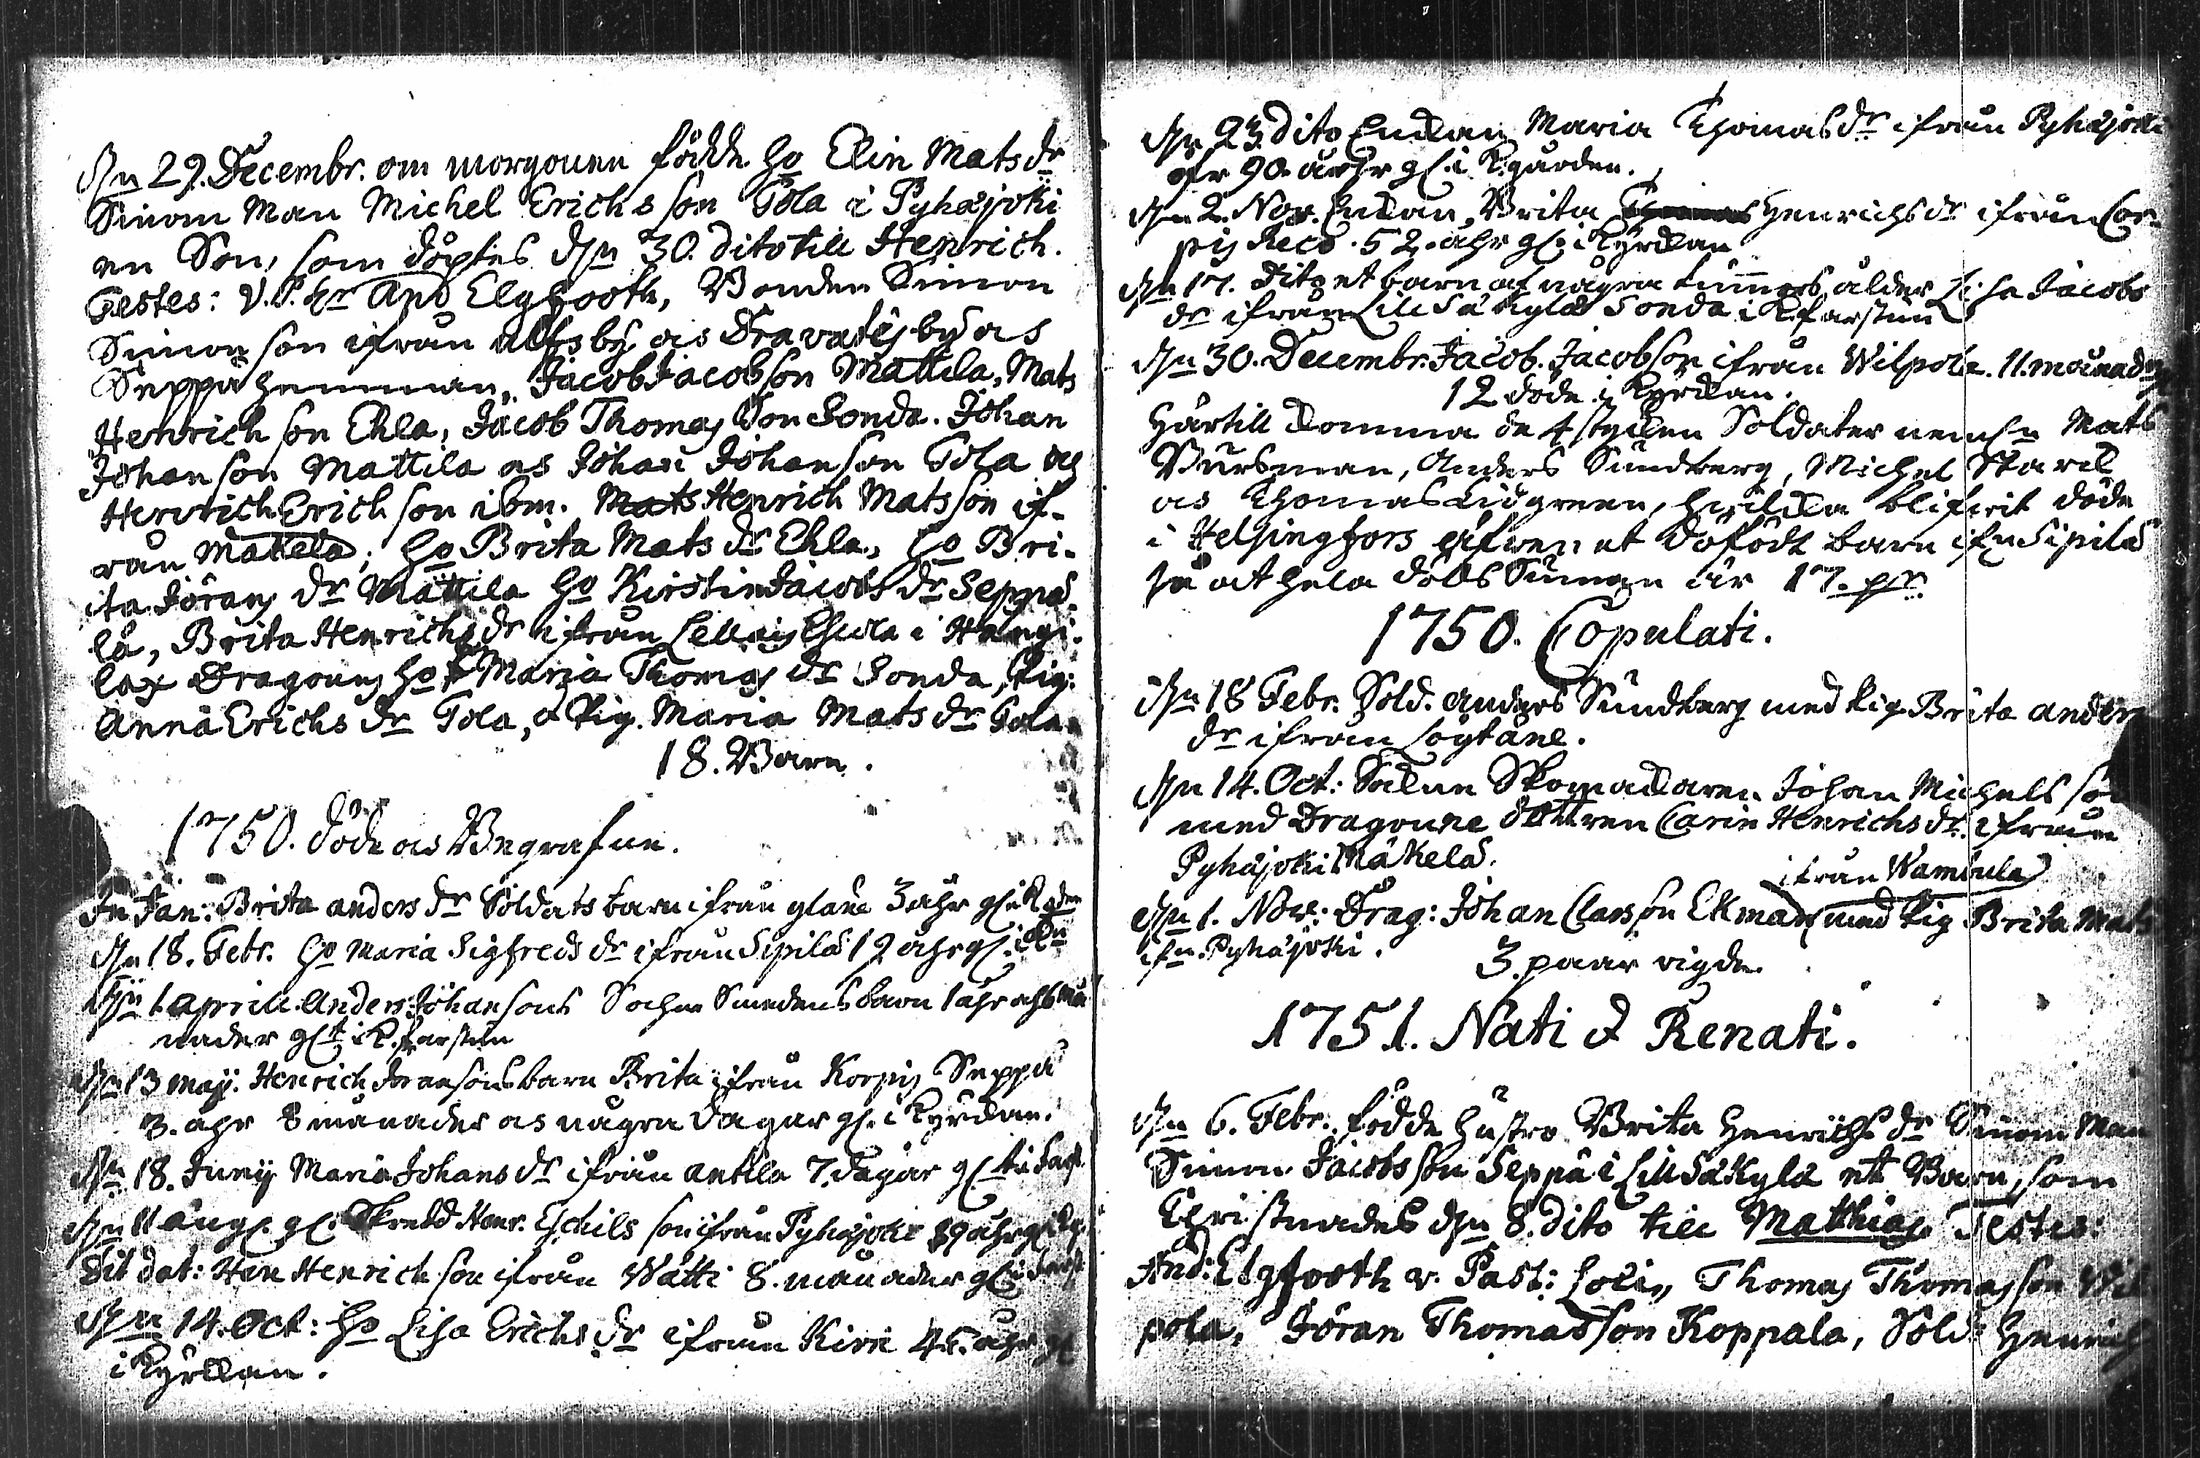 Den 29. Decembr. om morgonen födde ho Elin Mats dr
Sinom Man Michel Erichs son Tola i Pyhäjoki
en Son, som döptes den 30. dito till Henrich.
Testes: V.P. hr And Elgfooth, Bonden Simon
Simon son ifrån
Seppä hemman, Jacob Jacobson Mattila, Mats
Henrich son Ehla, Jacob Thomas Son Sonda. Johan
Johan son Mattila os Johan Johan son Tola os
Henrich Erich son ibm. Mats Henrich Matsson if-
rån Mattela; ho Brita Mats dr Ehla, ho Bri-
ita Jörans dr Mattila ho Kirstin Jacobs dr Seppä-
lä, Brita Henrichs dr ifrån i
Dragouns ho Maria Thomas dr Sonda, Pig:
Anna Erichs dr Tola, & Pig. Maria Mats dr Tola.
18. Barn.
1750. döde os Begrafne.
Jan: Brita anders dr Soldats barn ifrån 3 ahr
den 18. Febr. ho Maria Sigfreds dr ifrån Sipilä ahr
den 1 Aprill. Anders Johansons Sochne Smedens barn 1 ahr
nader i K.farstun
den 13 maji. Henrich barn Brita ifrån Korpis Seppä
3. ahr 8 månader os några dagar gl. i Kyrckan.
den 18. Junij Maria Johans dr ifrån Antila 7. dagar
den 11 Henr. Eschils son ifrån Pyhäjoki
dat: Hen Henrich son ifrån Wätti 8. månader
den 14. Oct: ho Lisa Erichs dr ifrån 45. ahr
i Kyrckan.
den 23. dito Enckan Maria Thomas dr ifrån Pyhäjoki
90. gl. i K.gården.
den 2. Nov. Enckan, Brita Henrichs dr ifrån Cor-
pis 52. ahr gl. i Kyrckan
den 17. dito et barn af några timmars ålder Lisa Jacobs
dr ifrån Lill Säkylä Sonda i K.farstun
den 30. Decembr. Jacob. Jacobson ifrån Wilpola. 11. månader
12 döde i Kyrckan.
Härtill komma de 4 stycken Soldater nemln Mats
Bursman, Anders Sundberg, Michel
os Thomas Lidgreen, hvilcka blifvit döde
i Helsingfors äfven et dödfödt barn ifn Sipilä
så at hela döds Summan är 17. prs
1750. Copulati.
den 18 Febr. Sold. Anders Sundberg med Pig. Brita Anders
dr ifrån Löytäne.
den 14. Oct: Sochne Skomackaren Johan Michels son
med Dragoune dottren Carin Henrichs dr. ifrån
Pyhäjoki Mäkelä.
ifrån Wambula
den 1. Nov: Drag: Johan Classon Ekman med Pig Brita Mats
ifn Pyhäjoki.
3. paar vigde.
1751. Nati & Renati.
den 6. Febr. födde Hustro Brita Henrichs dr Sinom Man
Simon Jacobsson Seppä i Lill Säkylä ett Barn, som
Christnades den 8. dito till Matthias Testes:
And: Elgfooth v. Past: Loci, Thomas Thomasson Wil-
pola, Jöran Thomasson Koppala, Sold: Henrich